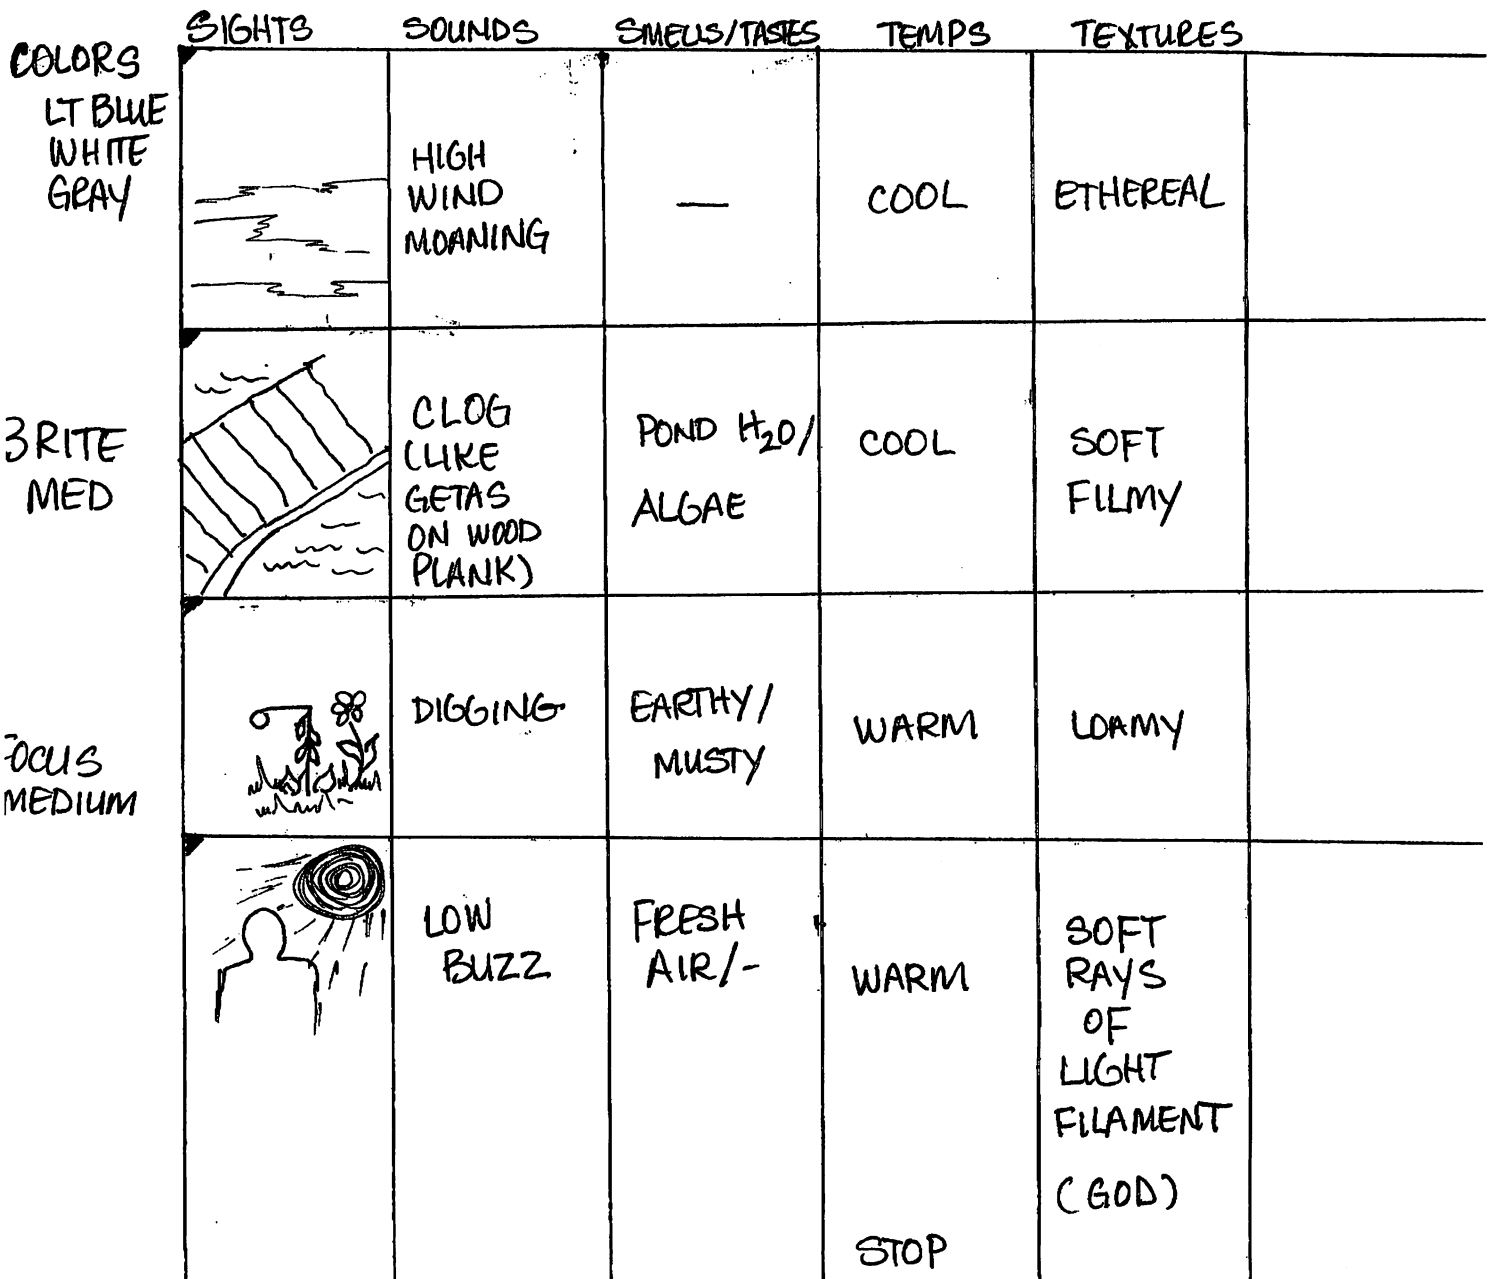 SIGHTS SOUNDS SMELLS/TASTES TEMPS TEXTURES
COLORS
LT BLUE
WHITE
GRAY
HIGH
WIND
MOANING
—
COOL
ETHEREAL
BRITE
MED
CLOG
(LIKE
GETAS
ON WOOD
PLANK)
POND H2O/
ALGAE
COOL
SOFT
FILMY
FOCUS
MEDIUM
DIGGING
EARTHY/
MUSTY
WARM
LOAMY
LOW
BUZZ
FRESH
AIR/-
WARM
SOFT
RAYS
OF
LIGHT
FILAMENT
(GOD)
STOP